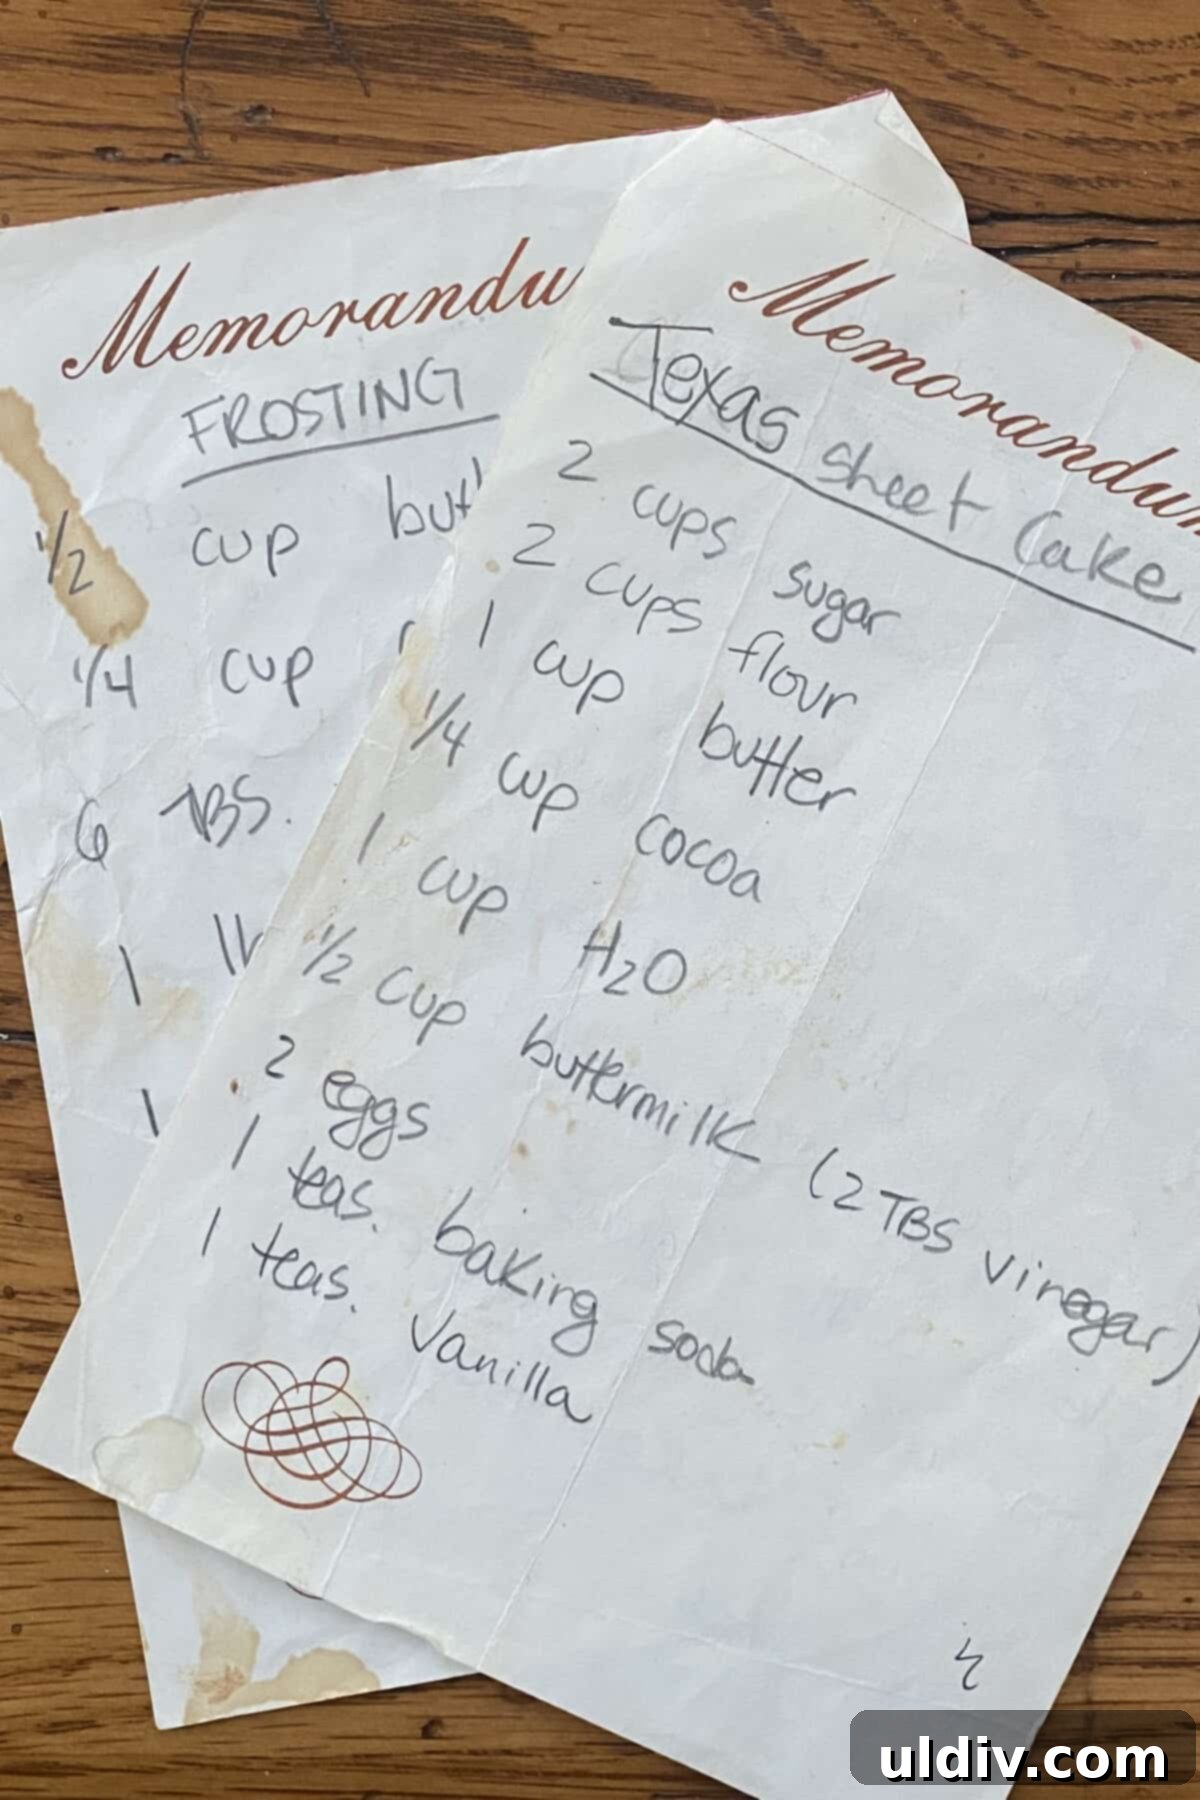 Memorandu
FROSTING
1/2 cup butt
1/4 cup
6 TBS.
1
1
Memorandum
Texas sheet Cake
2 cups sugar
2 cups flour
1 cup butter
1/4 cup cocoa
1 cup H2O
1/2 cup buttermilk (2 TBS vinegar)
2 eggs
1 teas. baking soda
1 teas. vanilla
uldiv.com